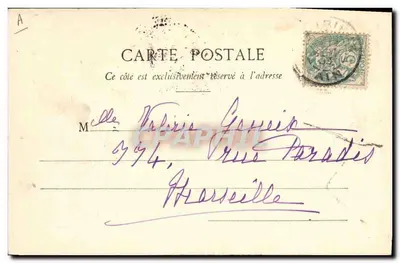 A
CARTE POSTALE
Ce côté est exclusivement réservé à l'adresse
AIN
Mlle Valerie
CPAPHIL
rue Paradis
Marseille